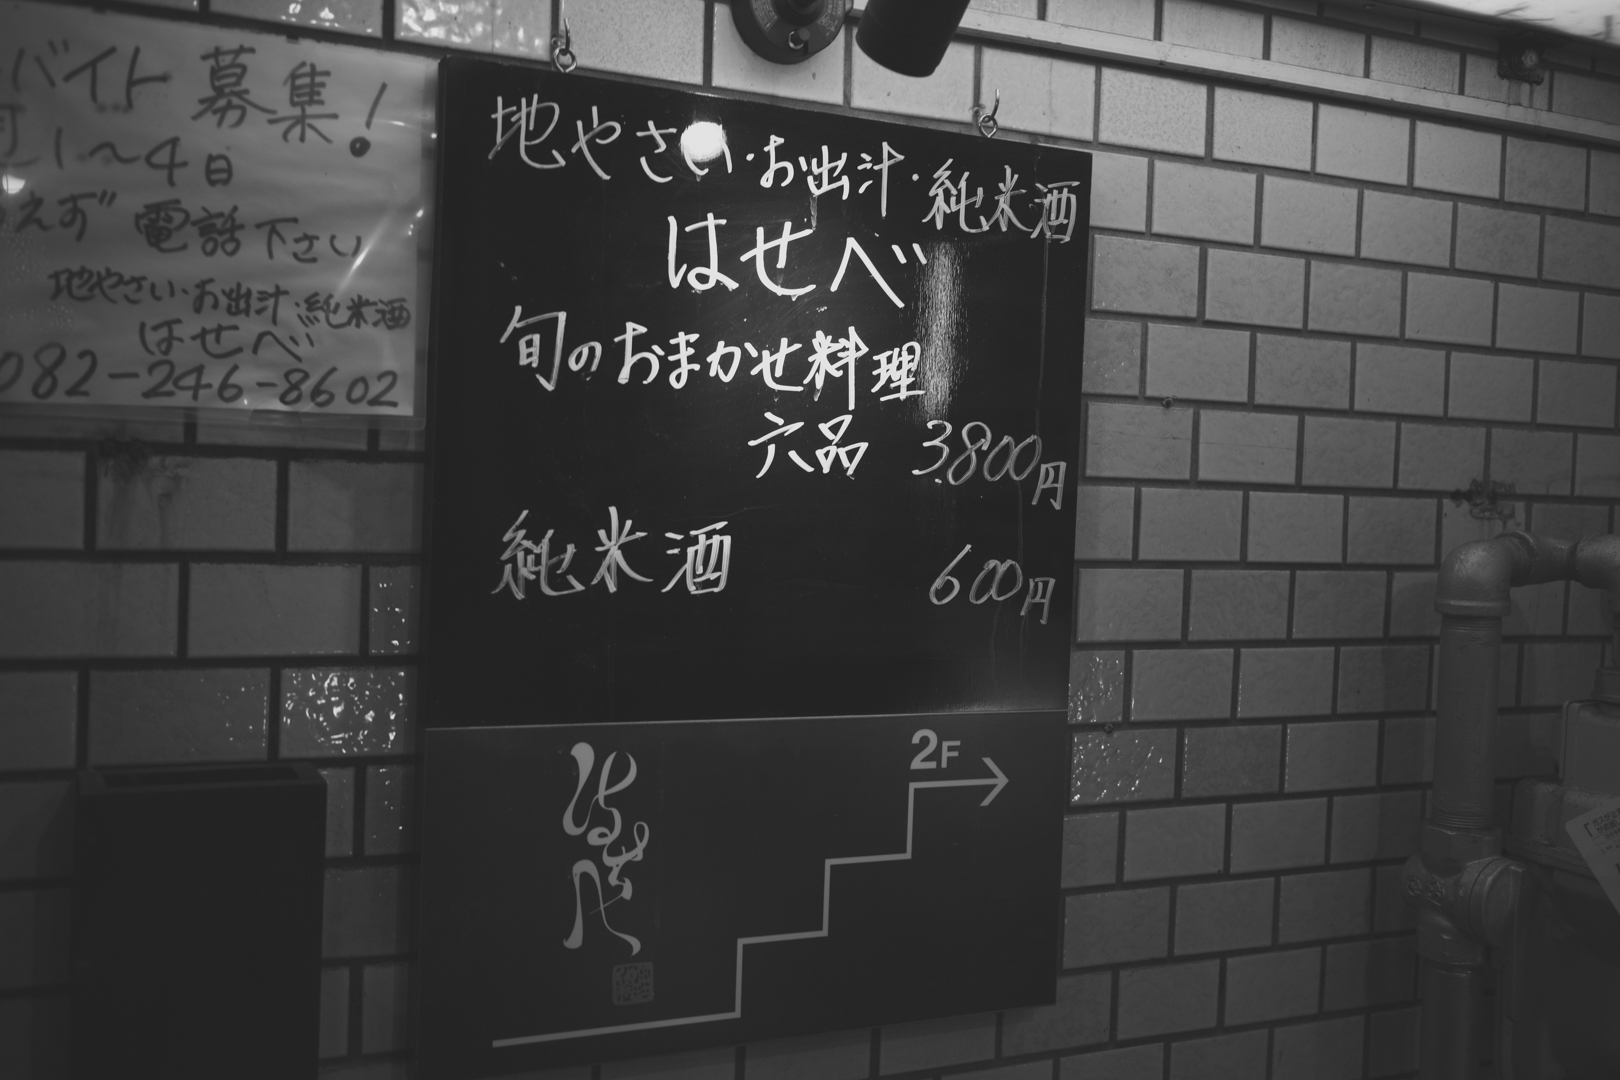 バイト 募集!
1~4日
えず 電話下さい
地やさい・お出汁・純米酒
はせべ
082-246-8602
地やさい・お出汁・純米酒
はせべ
旬のおまかせ料理
六品 3,800円
純米酒 600円
2F
はせべ